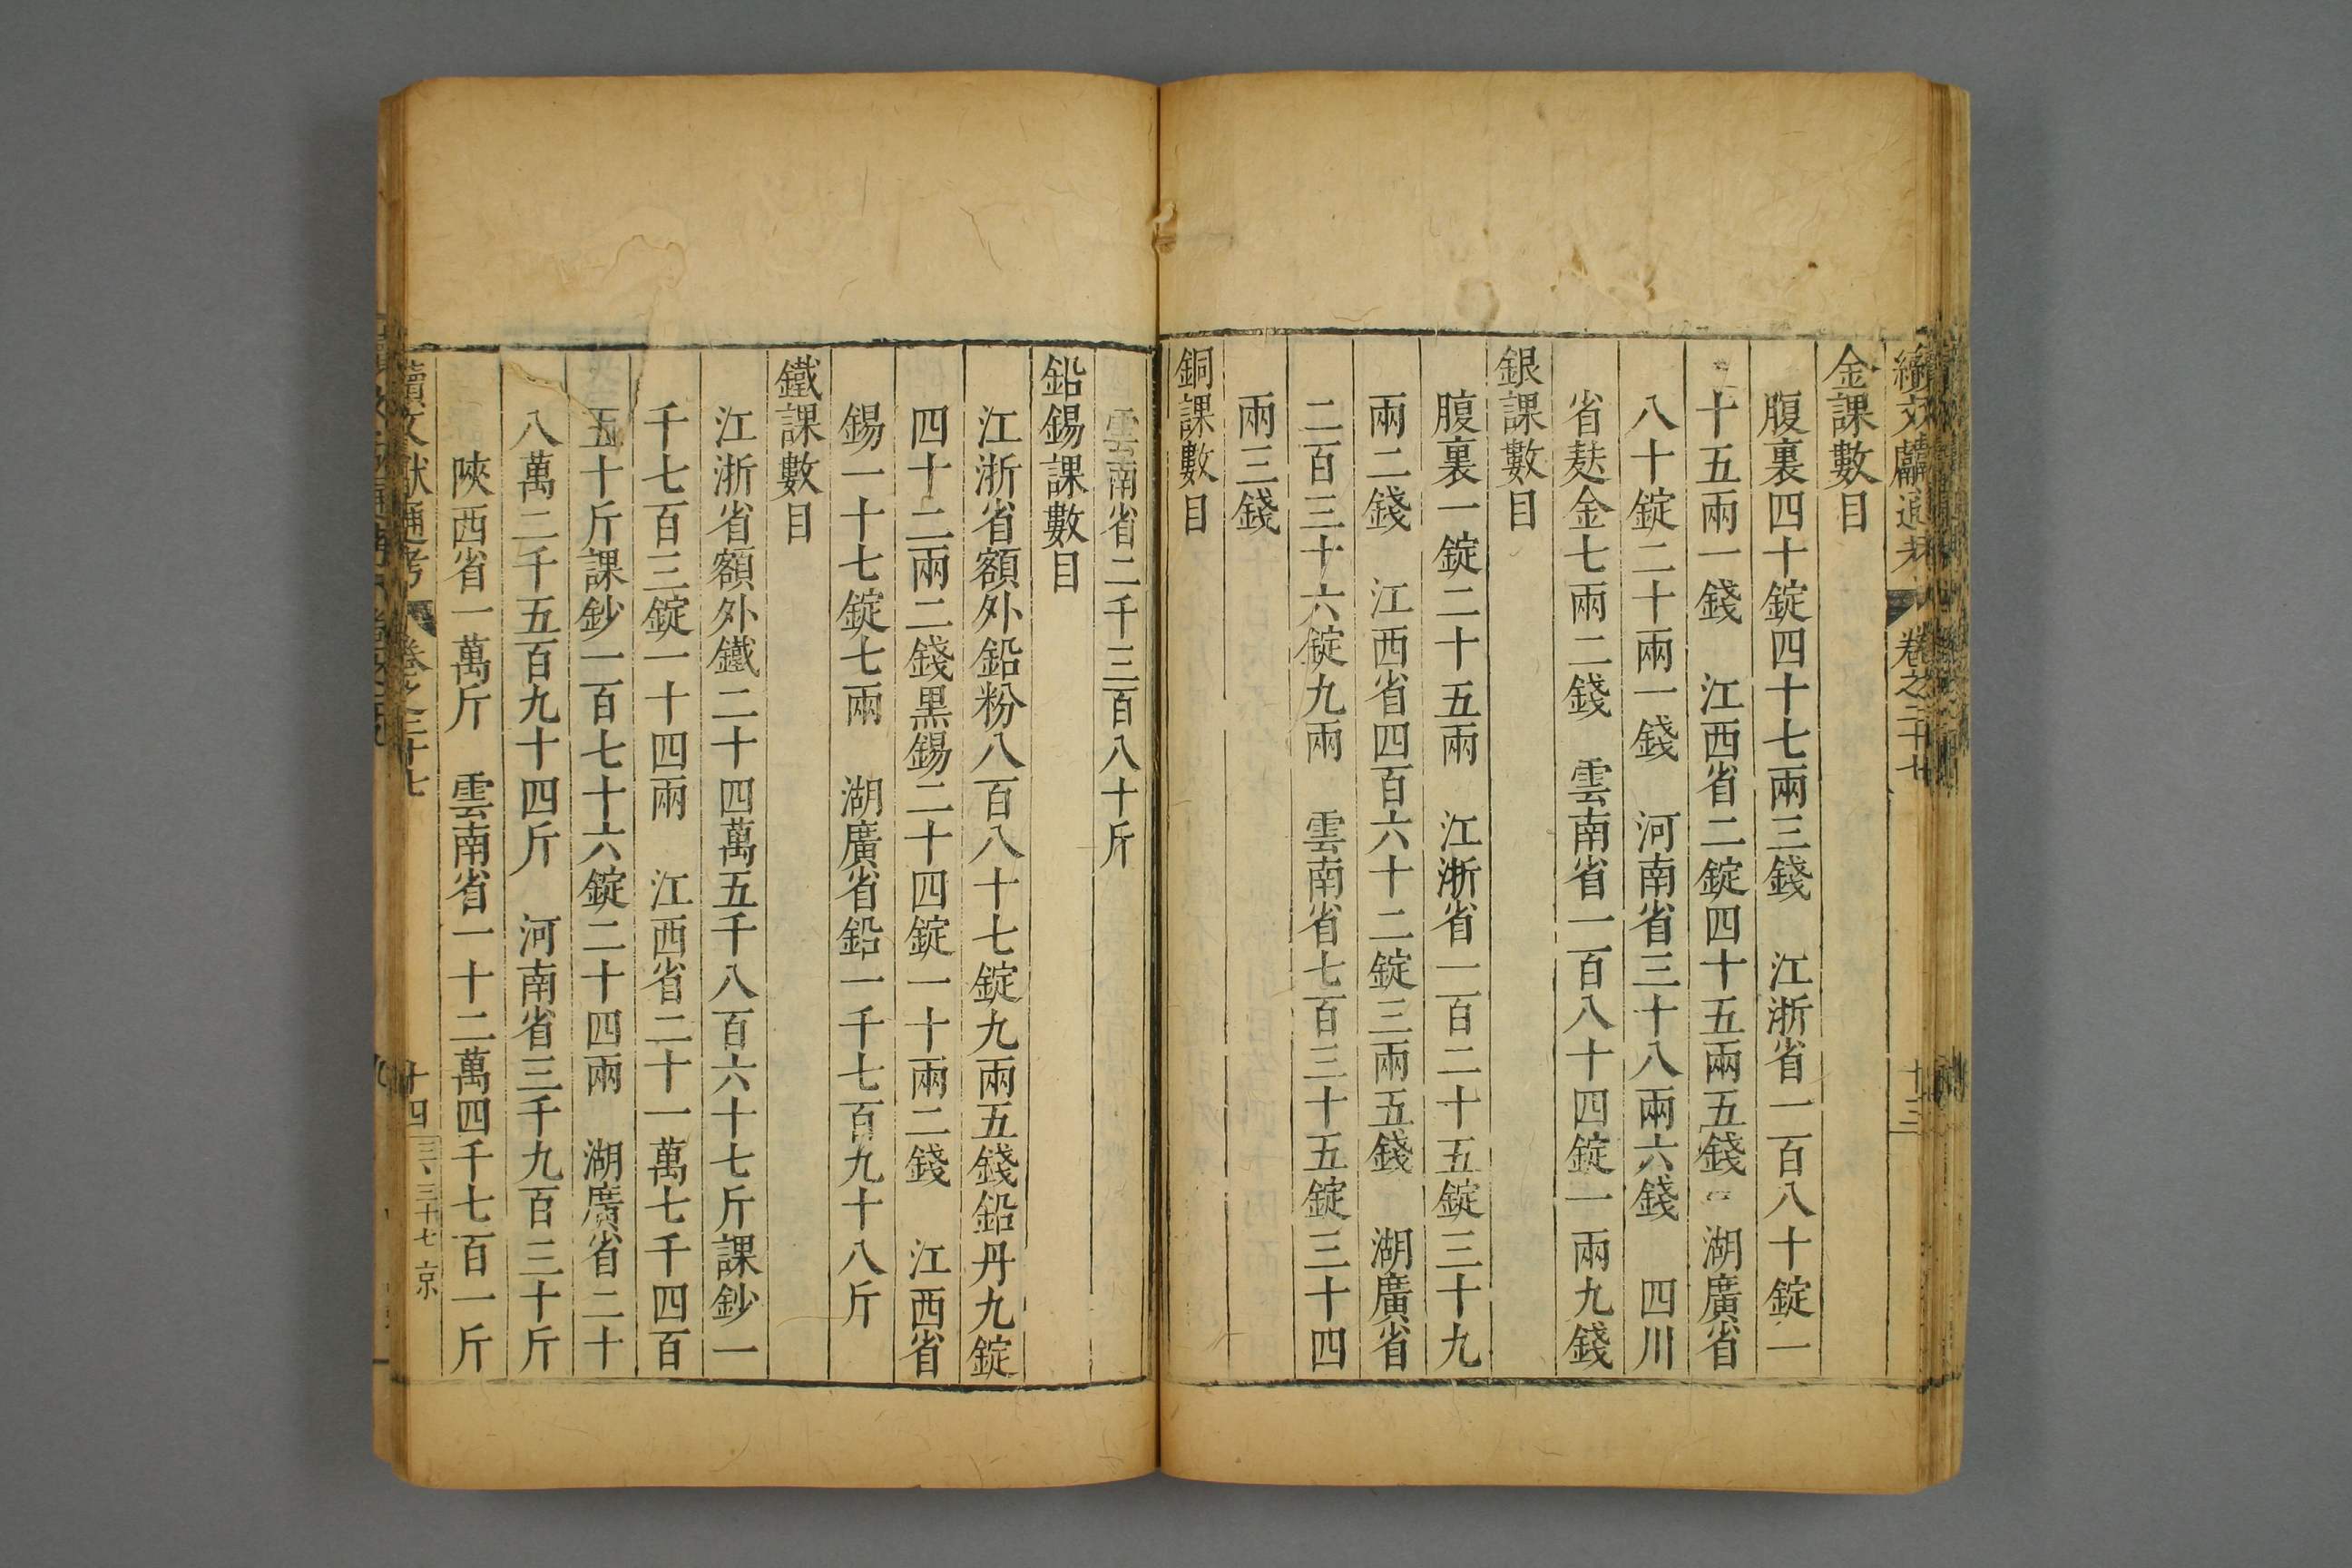 續文獻通考 卷之二十七 十三
金課數目
腹裏四十錠四十七兩三錢 江浙省一百八十錠一
十五兩一錢 江西省二錠四十五兩五錢 湖廣省
八十錠二十兩一錢 河南省三十八兩六錢 四川
省麩金七兩二錢 雲南省一百八十四錠一兩九錢
銀課數目
腹裏一錠二十五兩 江浙省一百二十五錠三十九
兩二錢 江西省四百六十二錠三兩五錢 湖廣省
二百三十六錠九兩 雲南省七百三十五錠三十四
兩三錢
銅課數目
雲南省二千三百八十斤
鉛錫課數目
江浙省額外鉛粉八百八十七錠九兩五錢鉛丹九錠
四十二兩二錢黑錫二十四錠一十兩二錢 江西省
錫一十七錠七兩 湖廣省鉛一千七百九十八斤
鐵課數目
江浙省額外鐵二十四萬五千八百六十七斤課鈔一
千七百三錠一十四兩 江西省二十一萬七千四百
五十斤課鈔一百七十六錠二十四兩 湖廣省二十
八萬二千五百九十四斤 河南省三千九百三十斤
陝西省一萬斤 雲南省一十二萬四千七百一斤
續文獻通考 卷之二十七 十四 三十七 京